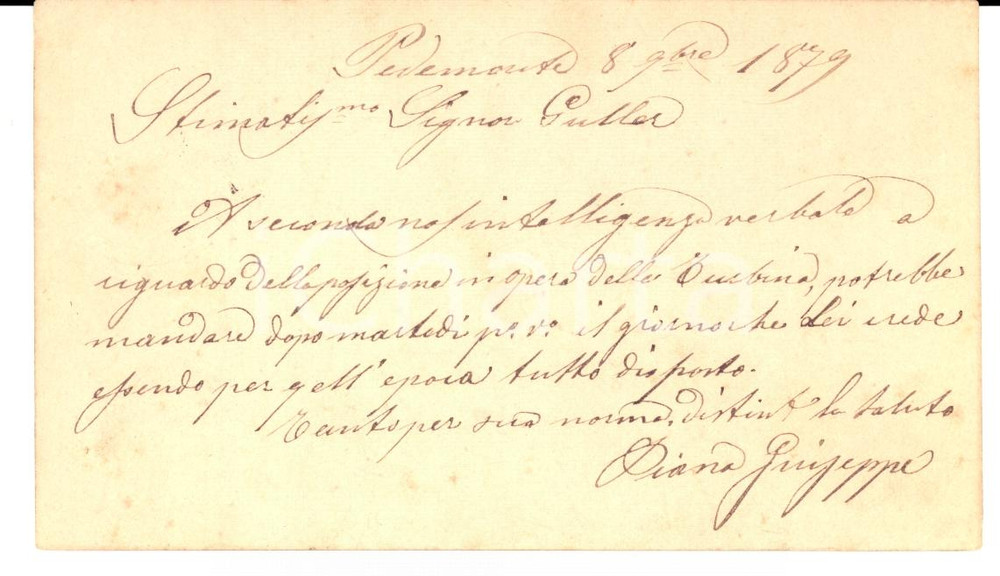 Pedemonte 8 9bre 1879
Stimatissmo Signor Guller
A seconda nos intelligenza verbale a
riguardo della posizione in opera della Turbina, potrebbe
mandare dopo martedi p.o v.o il giorno che Lei crede
essendo per quell'epoca tutto disposto.
Tanto per sua norma, distint la saluto
Piana Giuseppe